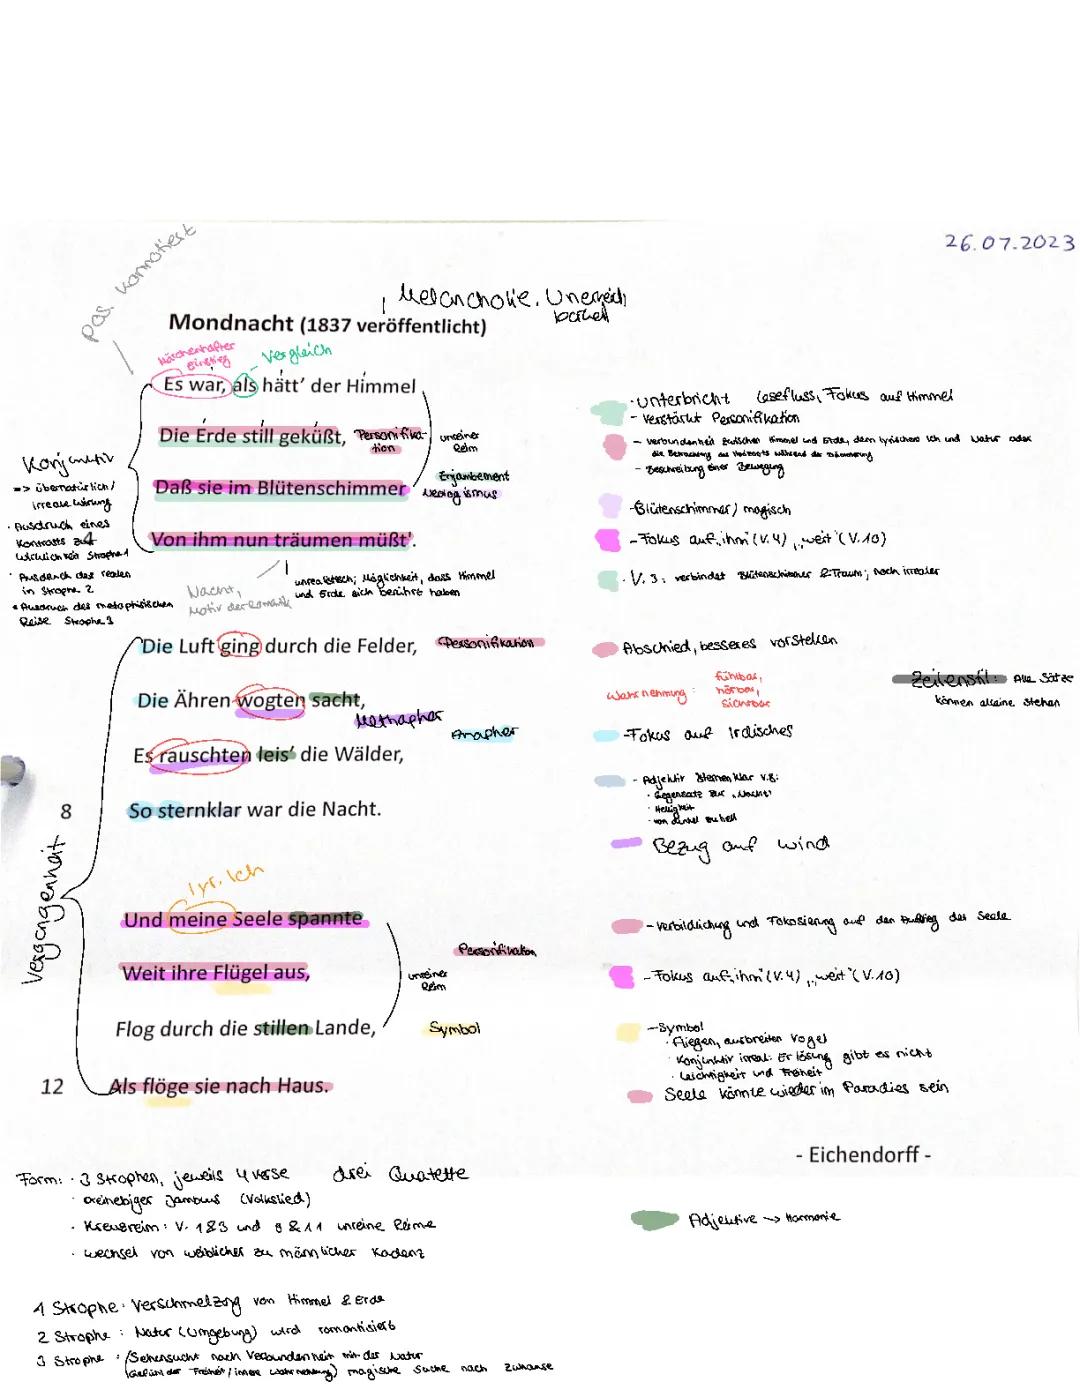 26.07.2023
pos. konnotiert
Melancholie, Unerreich
barkeit
Mondnacht (1837 veröffentlicht)
Märchenhafter
Einstieg
Vergleich
Es war, als hätt' der Himmel
Die Erde still geküßt,
Personifika-
tion
unreiner
Reim
Daß sie im Blütenschimmer
Enjambement
Neologismus
Von ihm nun träumen müßt'.
Konjunktiv
=> übernatürlich/
irreale Wirkung
· Ausdruck eines
Kontrasts zur
Wirklichkeit Strophe 1
· Ausdruck des realen
in Strophe 2
· Ausdruck des metaphisischen
Reise Strophe 3
Nacht,
Motiv der Romantik
unrealistisch; Möglichkeit, dass Himmel
und Erde sich berührt haben
· unterbricht Lesefluss, Fokus auf Himmel
- verstärkt Personifikation
- Verbundenheit zwischen Himmel und Erde, dem lyrischen Ich und Natur oder
die Betrachtung des während der Dämmerung
- Beschreibung einer Bewegung
- Blütenschimmer/ magisch
- Fokus auf „ihm" (V.4) „weit" (V.10)
· V. 3: verbindet Blütenschimmer & Traum; noch irrealer
Die Luft ging durch die Felder,
Personifikation
Die Ähren wogten sacht,
Methapher
Anapher
Es rauschten leis' die Wälder,
8
So sternklar war die Nacht.
Abschied, besseres vorstellen
Wahrnehmung:
fühlbar,
hörbar,
sichtbar
Zeilenstil: Alle Sätze
können alleine stehen
-Fokus auf Irdisches
- Adjektiv Sternenklar V.8:
· Gegensatz zur „Nacht"
· Helligkeit
· von dunkel zu hell
Bezug auf Wind
Vergangenheit
lyr. Ich
Und meine Seele spannte
Personifikation
Weit ihre Flügel aus,
unreiner
Reim
Flog durch die stillen Lande,
Symbol
12
Als flöge sie nach Haus.
- Verbildlichung und Fokosierung auf den Aufstieg der Seele
- Fokus auf „ihm" (V.4) „weit" (V.10)
-Symbol
· Fliegen, ausbreiten Vogel
Konjunktiv irreal: Erlösung gibt es nicht
· Leichtigkeit und Freiheit
Seele könnte wieder im Paradies sein
- Eichendorff -
Form: · 3 Strophen, jeweils 4 Verse drei Quatette
· dreihebiger Jambus (Volkslied)
· Kreuzreim: V. 1&3 und 9&11 unreine Reime
· wechsel von weiblicher zu männlicher Kadenz
Adjektive -> Harmonie
1 Strophe: Verschmelzung von Himmel & Erde
2 Strophe: Natur (Umgebung) wird romantisiert
3 Strophe: /Sehensucht nach Verbundenheit mit der Natur
(Gefühl der Freiheit/innere Wahrnehmung) magische Suche nach Zuhause